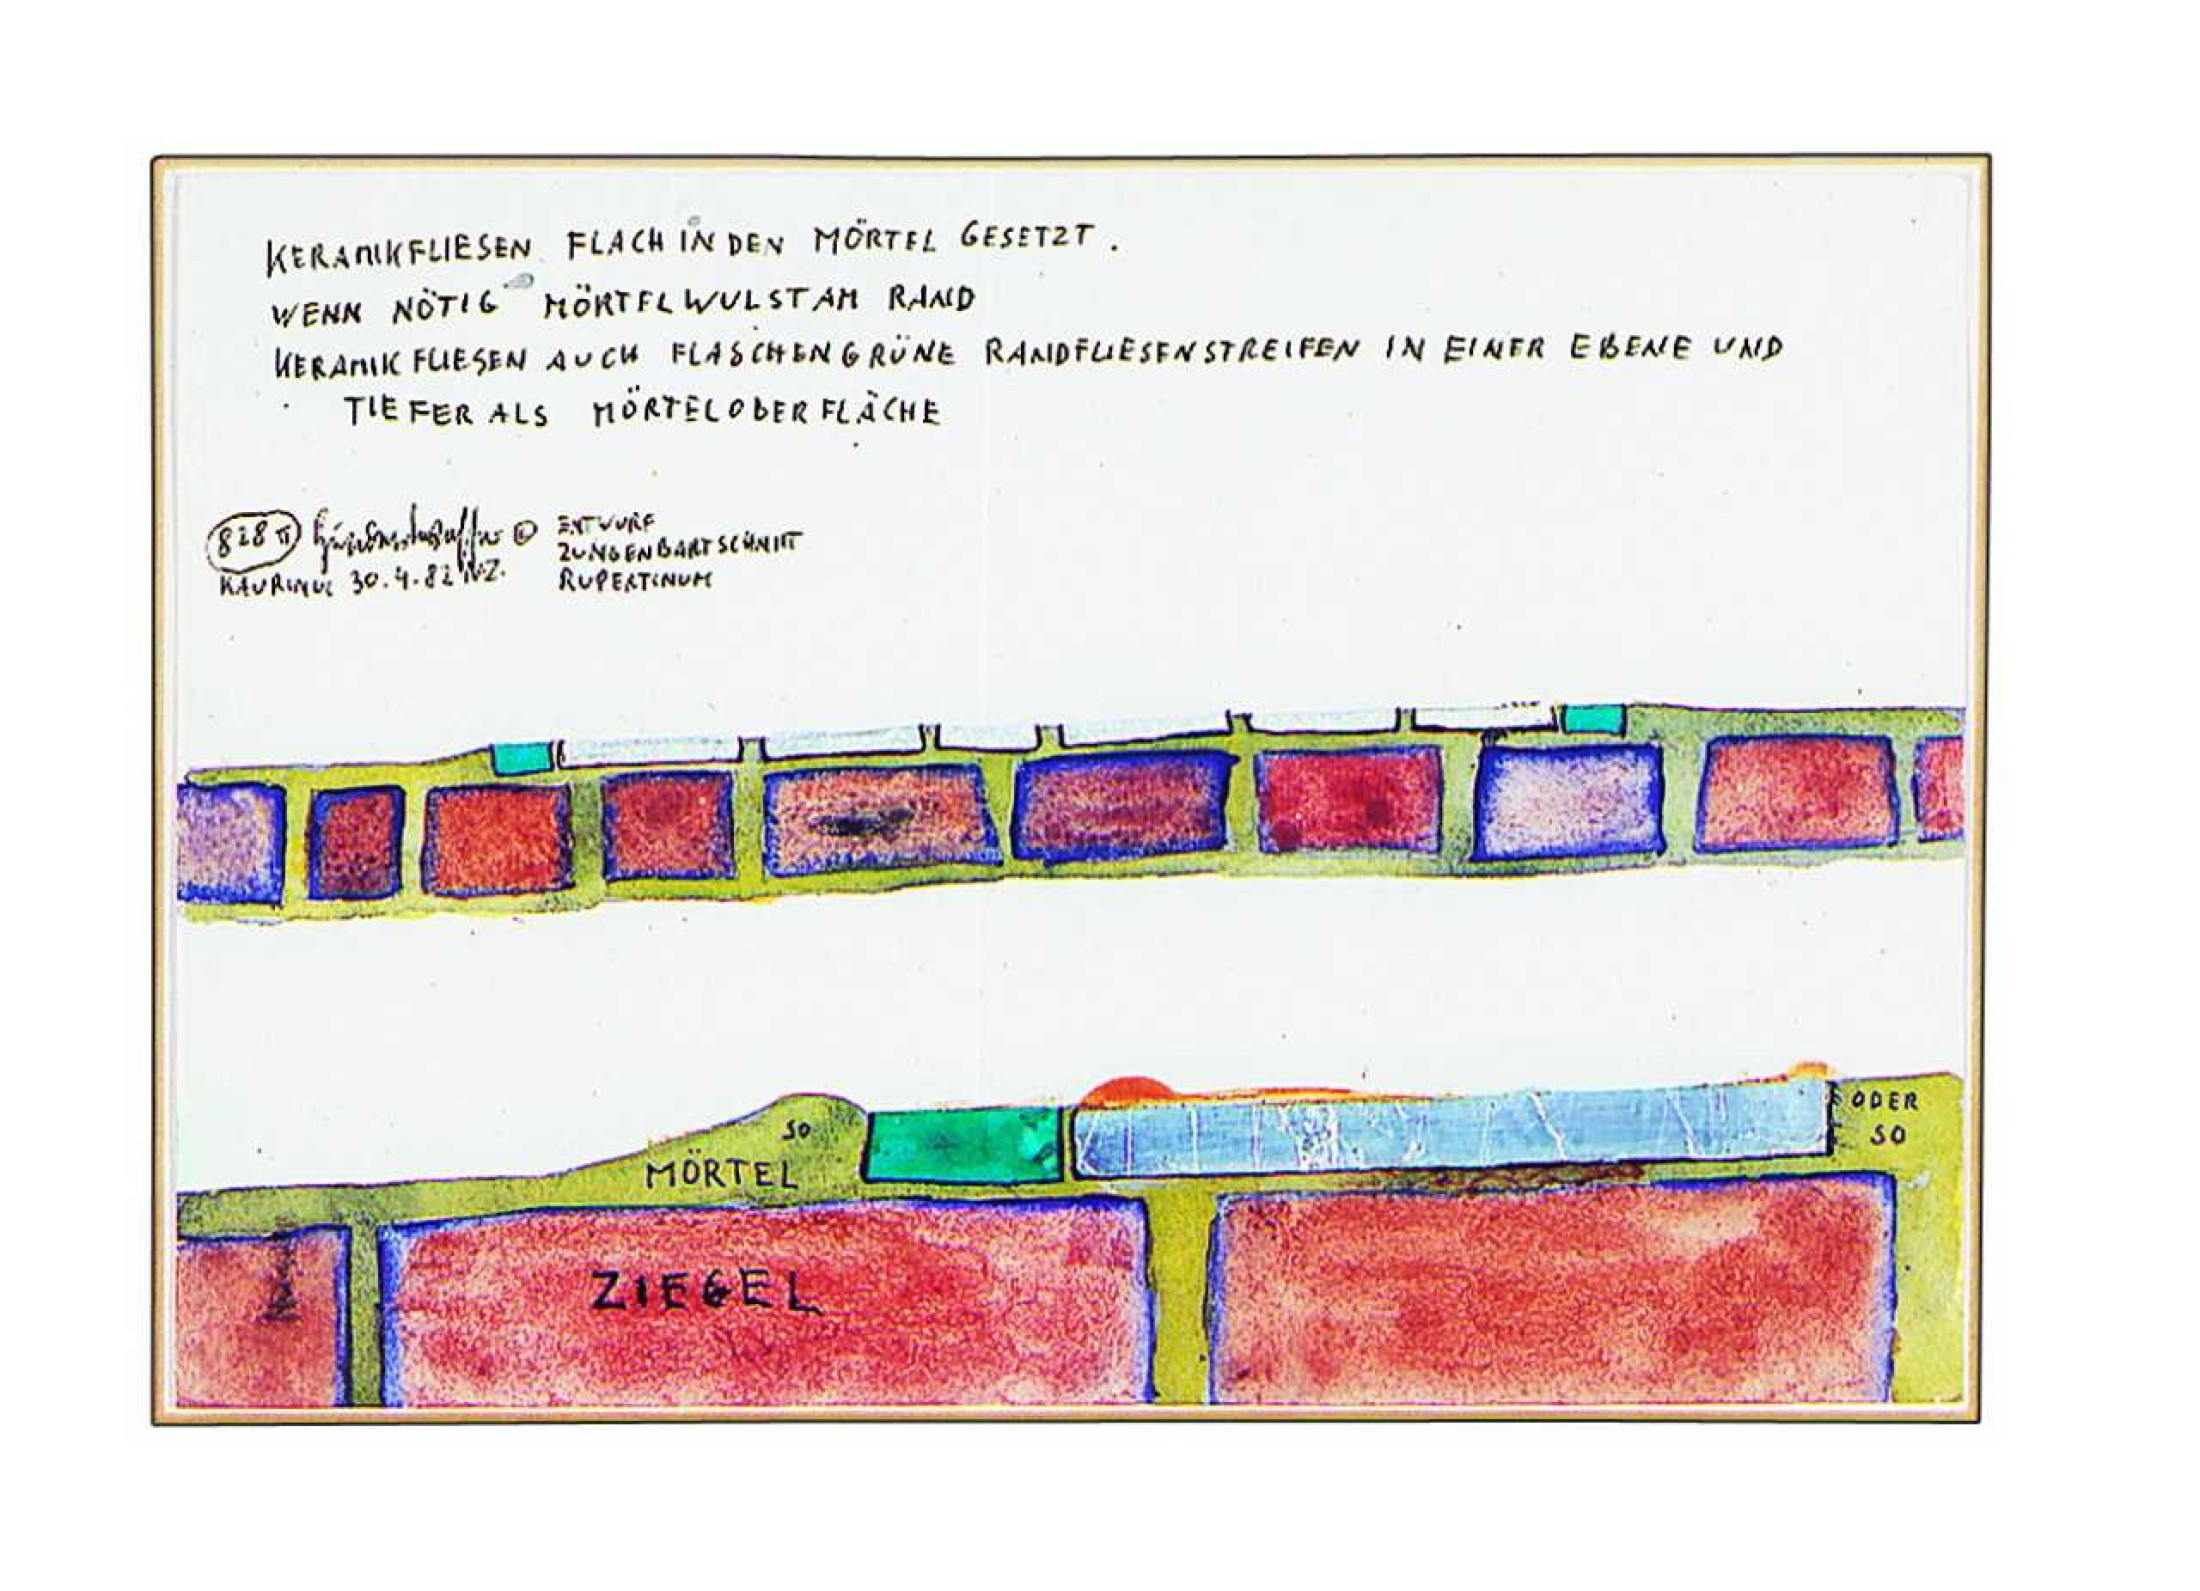 KERAMIKFLIESEN FLACH IN DEN MÖRTEL GESETZT.
WENN NÖTIG MÖRTELWULST AM RAND
KERAMIKFLIESEN AUCH FLASCHENGRÜNE RANDFLIESENSTREIFEN IN EINER EBENE UND
TIEFER ALS MÖRTELOBERFLÄCHE
828 Hundertwasser © ENTWURF
ZUNGENBART SCHNITT
KAURINUI 30.4.82 N.Z. RUPERTINUM
SO
MÖRTEL
ODER
SO
ZIEGEL